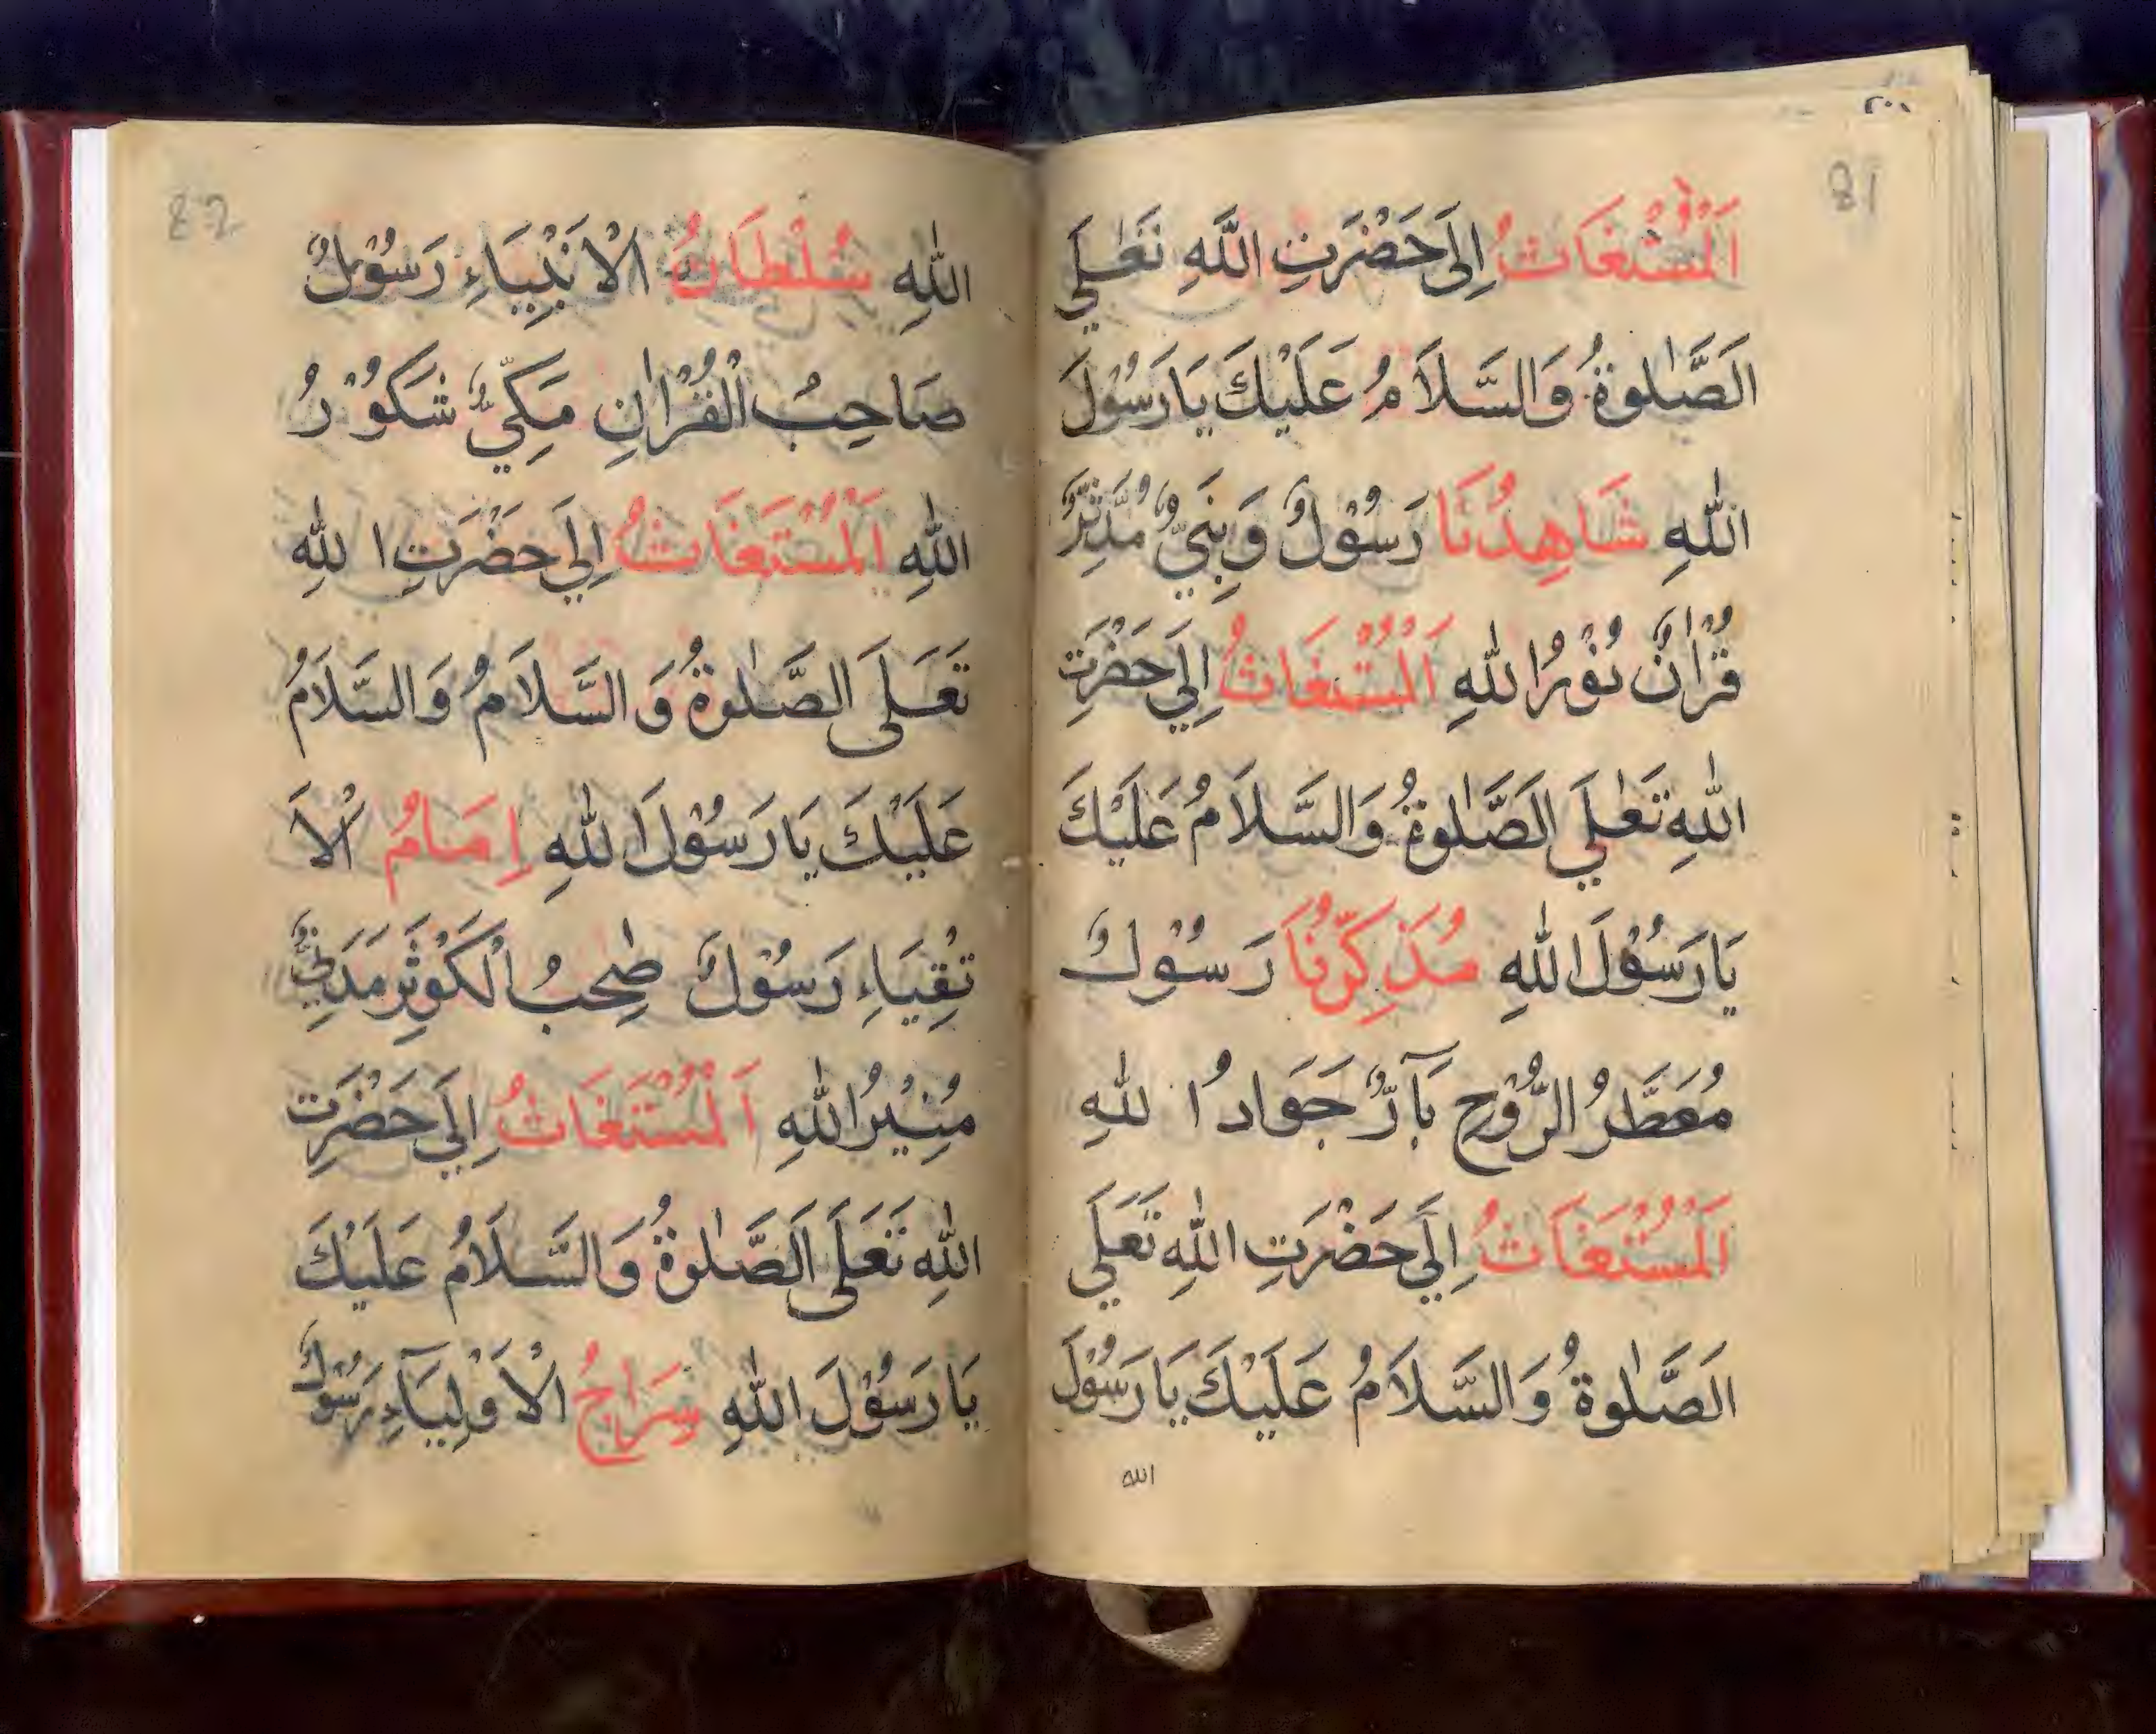 81
اَلْمُسْتَغَاثُ اِلَى حَضْرَتِ اللّٰهِ تَعَٰلَي
اَلصَّلٰوةُ وَالسَّلَامُ عَلَيْكَ يَارَسُوْلَ
اللّٰهِ شَاهِدُنَا رَسُوْلٌ وَنَبِيٌّ مُدَّثِّرٌ
قُرْاٰنٌ نُوْرُ اللّٰهِ اَلْمُسْتَغَاثُ اِلَي حَضْرَتِ
اللّٰهِ تَعَٰلَي اَلصَّلٰوةُ وَالسَّلَامُ عَلَيْكَ
يَارَسُوْلَ اللّٰهِ مُذَكِّرُنَا رَسُوْلٌ
مُعَطَّرُ الرُّوْحِ بَآرٌّ جَوَادُ اللّٰهِ
اَلْمُسْتَغَاثُ اِلَي حَضْرَتِ اللّٰهِ تَعَلَي
اَلصَّلٰوةُ وَالسَّلَامُ عَلَيْكَ يَارَسُوْلَ
الله
82
اللّٰهِ سُلْطَانُ الْاَنْبِيَاءِ رَسُوْلٌ
صَاحِبُ الْقُرْاٰنِ مَكِّيٌّ شَكُوْرُ
اللّٰهِ اَلْمُسْتَغَاثُ اِلَي حَضْرَتِ اللّٰهِ
تَعَلَى الصَّلٰوةُ وَالسَّلَامُ وَالسَّلَامُ
عَلَيْكَ يَارَسُوْلَ اللّٰهِ اِمَامُ الْاَ
تْقِيَاءِ رَسُوْلٌ صٰحِبُ الْكَوْثَرِ مَدَنِيٌّ
مُنِيْرُ اللّٰهِ اَلْمُسْتَغَاثُ اِلَي حَضْرَتِ
اللّٰهِ تَعَلَى اَلصَّلٰوةُ وَالسَّلَامُ عَلَيْكَ
يَارَسُوْلَ اللّٰهِ سِرَاجُ الْاَوْلِيَآءِ رَسُوْلٌ